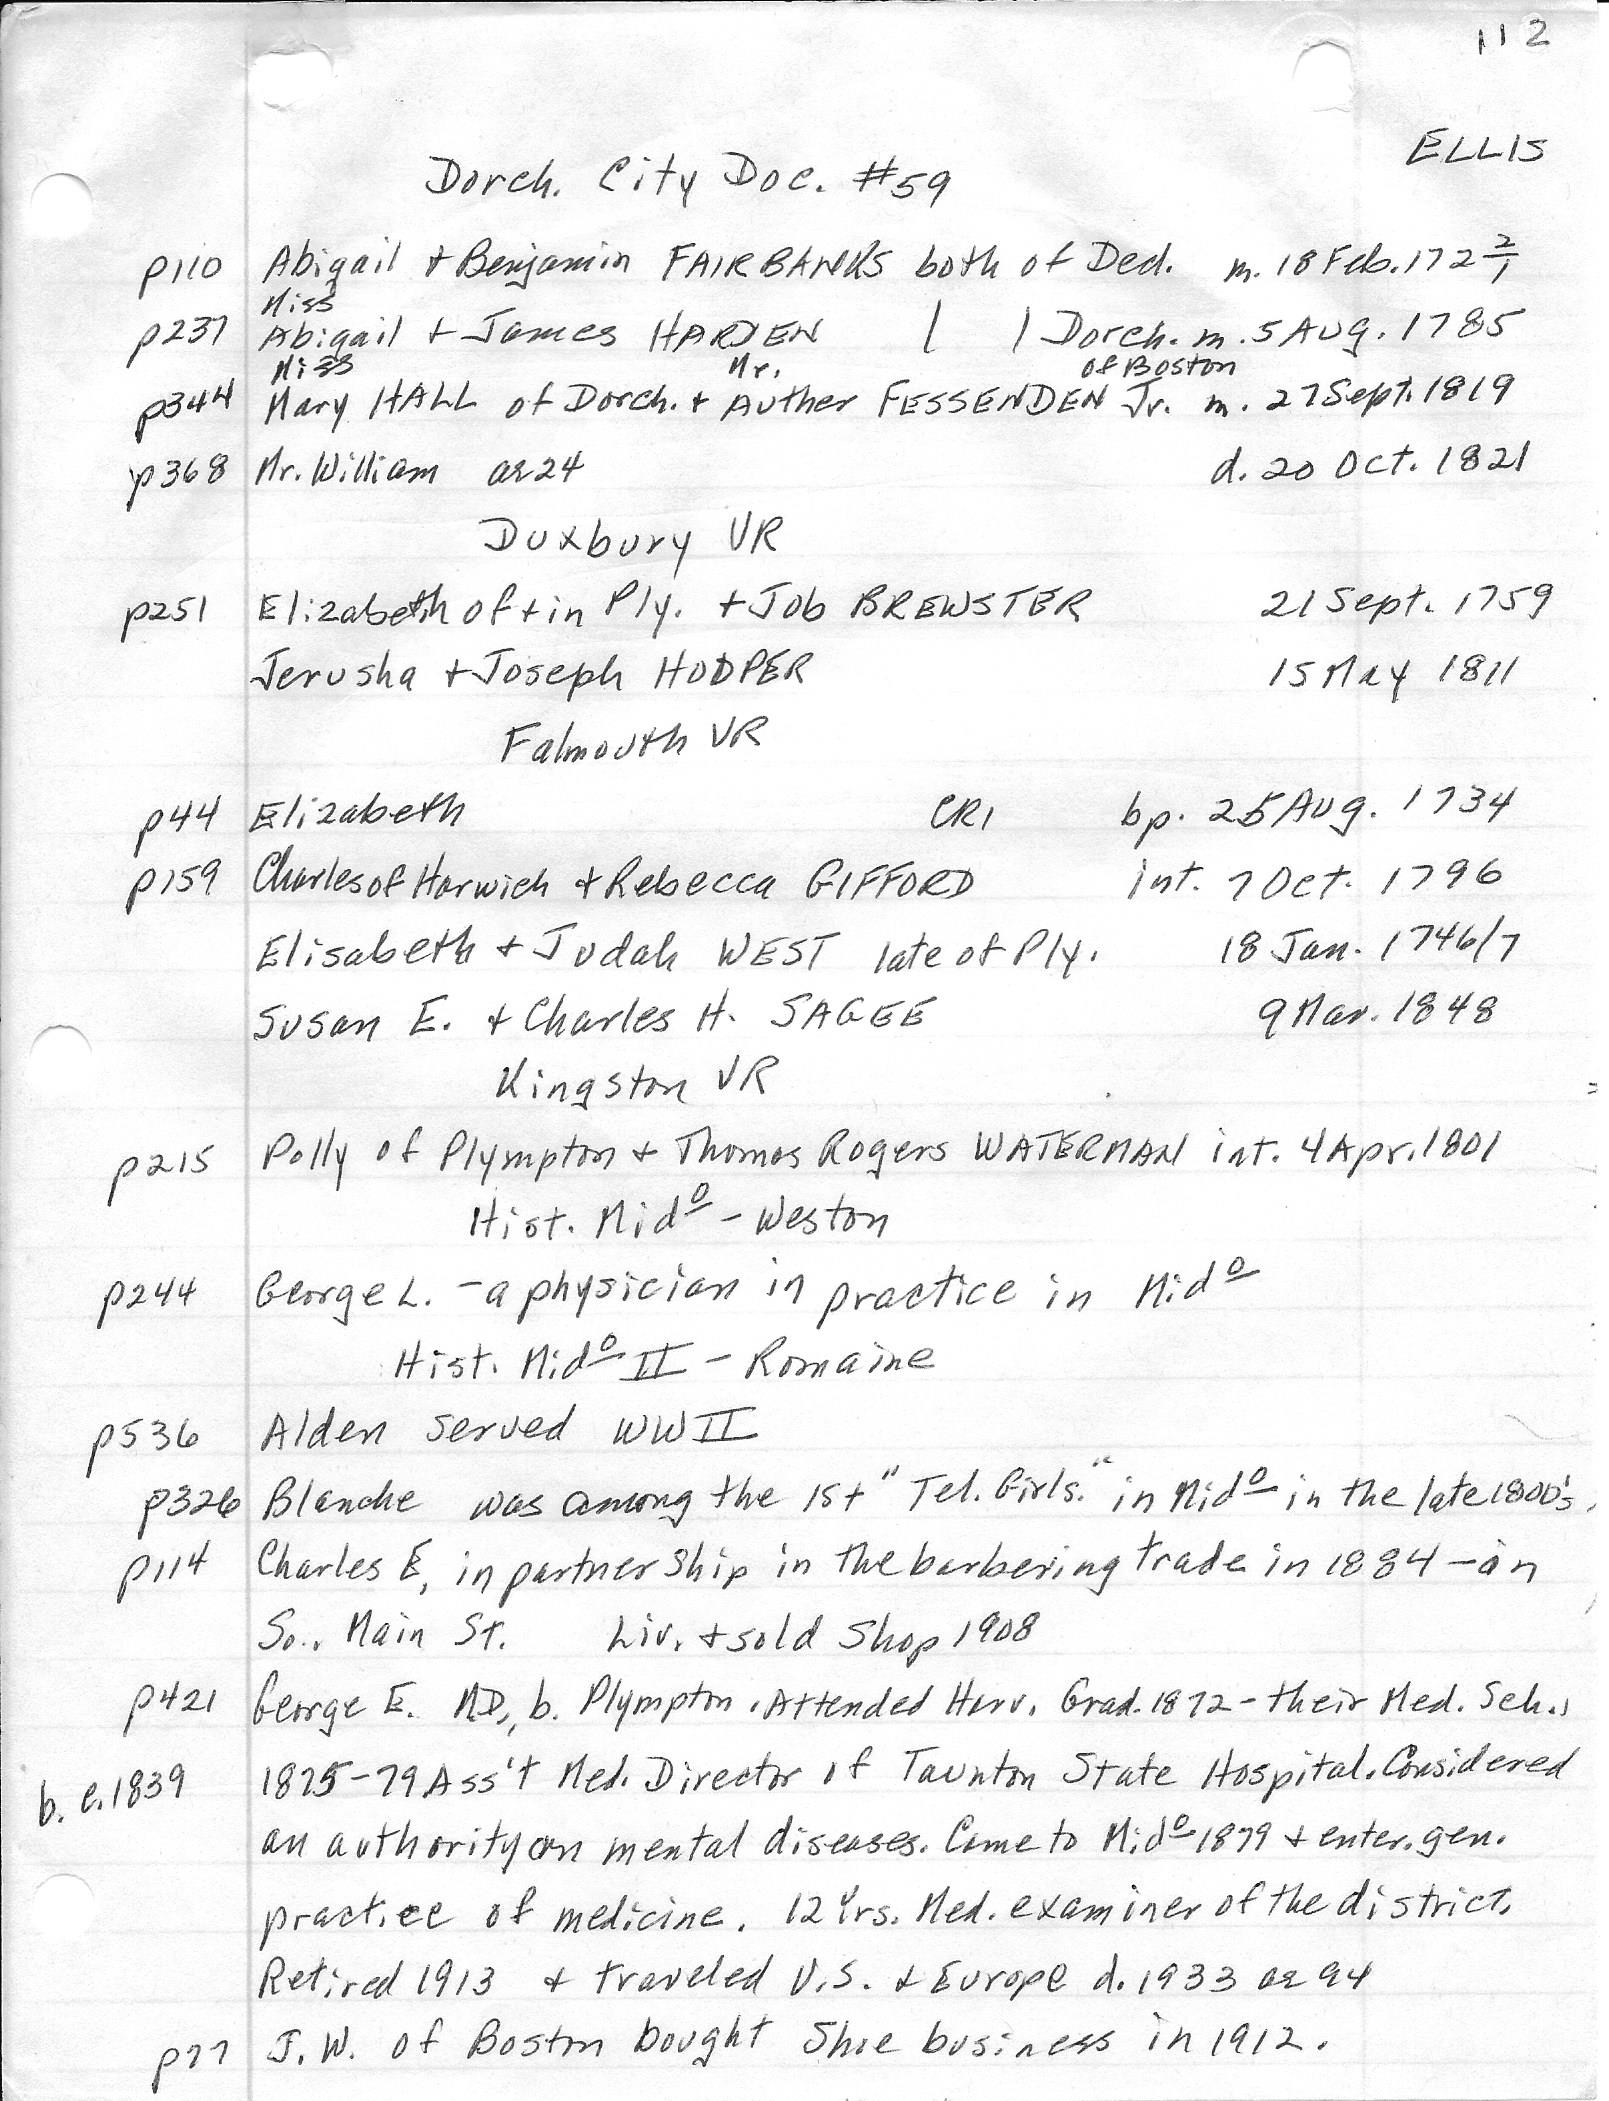 112
ELLIS
Dorch. City Doc. #59
p110 Abigail + Benjamin FAIRBANKS both of Ded. m. 18 Feb. 172 2/1
Miss
p237 Abigail + James HARDEN | | Dorch. m. 5 Aug. 1785
Miss Mr. of Boston
p344 Mary HALL of Dorch. + Auther FESSENDEN Jr. m. 27 Sept. 1819
p368 Mr. William ae 24 d. 20 Oct. 1821
Duxbury VR
p251 Elizabeth of + in Ply. + Job BREWSTER 21 Sept. 1759
Jerusha + Joseph HOOPER 15 May 1811
Falmouth VR
p44 Elizabeth CR1 bp. 25 Aug. 1734
p159 Charles of Harwich + Rebecca GIFFORD int. 7 Oct. 1796
Elisabeth + Judah WEST late of Ply. 18 Jan. 1746/7
Susan E. + Charles H. SAGEE 9 Mar. 1848
Kingston VR
p215 Polly of Plympton + Thomas Rogers WATERMAN int. 4 Apr. 1801
Hist. Mido - Weston
p244 George L. - a physician in practice in Mido
Hist. Mido II - Romaine
p536 Alden served WW II
p326 Blanche was among the 1st "Tel. Girls." in Mido in the late 1800's.
p114 Charles E, in partner ship in the barbering trade in 1884 - on
So. Main St. Liv. + sold Shop 1908
p421 George E. MD., b. Plympton. Attended Harv. Grad. 1872 - their Med. Sch.,
b. c. 1839 1875-79 Ass't Med. Director of Taunton State Hospital. Considered
an authority on mental diseases. Came to Mido 1879 + enter. gen.
practice of medicine. 12 Yrs. Med. examiner of the district.
Retired 1913 + traveled U.S. + Europe d. 1933 ae 94
p77 J. W. of Boston bought Shoe business in 1912.